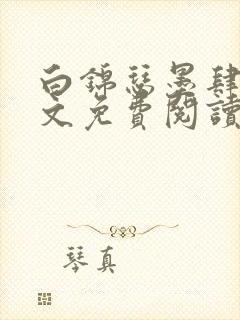 白錦瑟墨肆
文免費閱讀
琴真